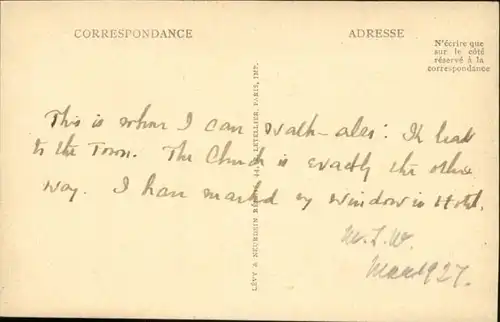 CORRESPONDANCE
ADRESSE
N'écrire que
sur le côté
réservé à la
correspondance
LÉVY & NEURDEIN RÉUNIS, 44, R. LETELLIER, PARIS, IMP.
This is where I can walk – alas! It leads
to the Town. The Church is exactly the other
way. I have marked my window in Hotel.
M.L.W.
Mar 1927.